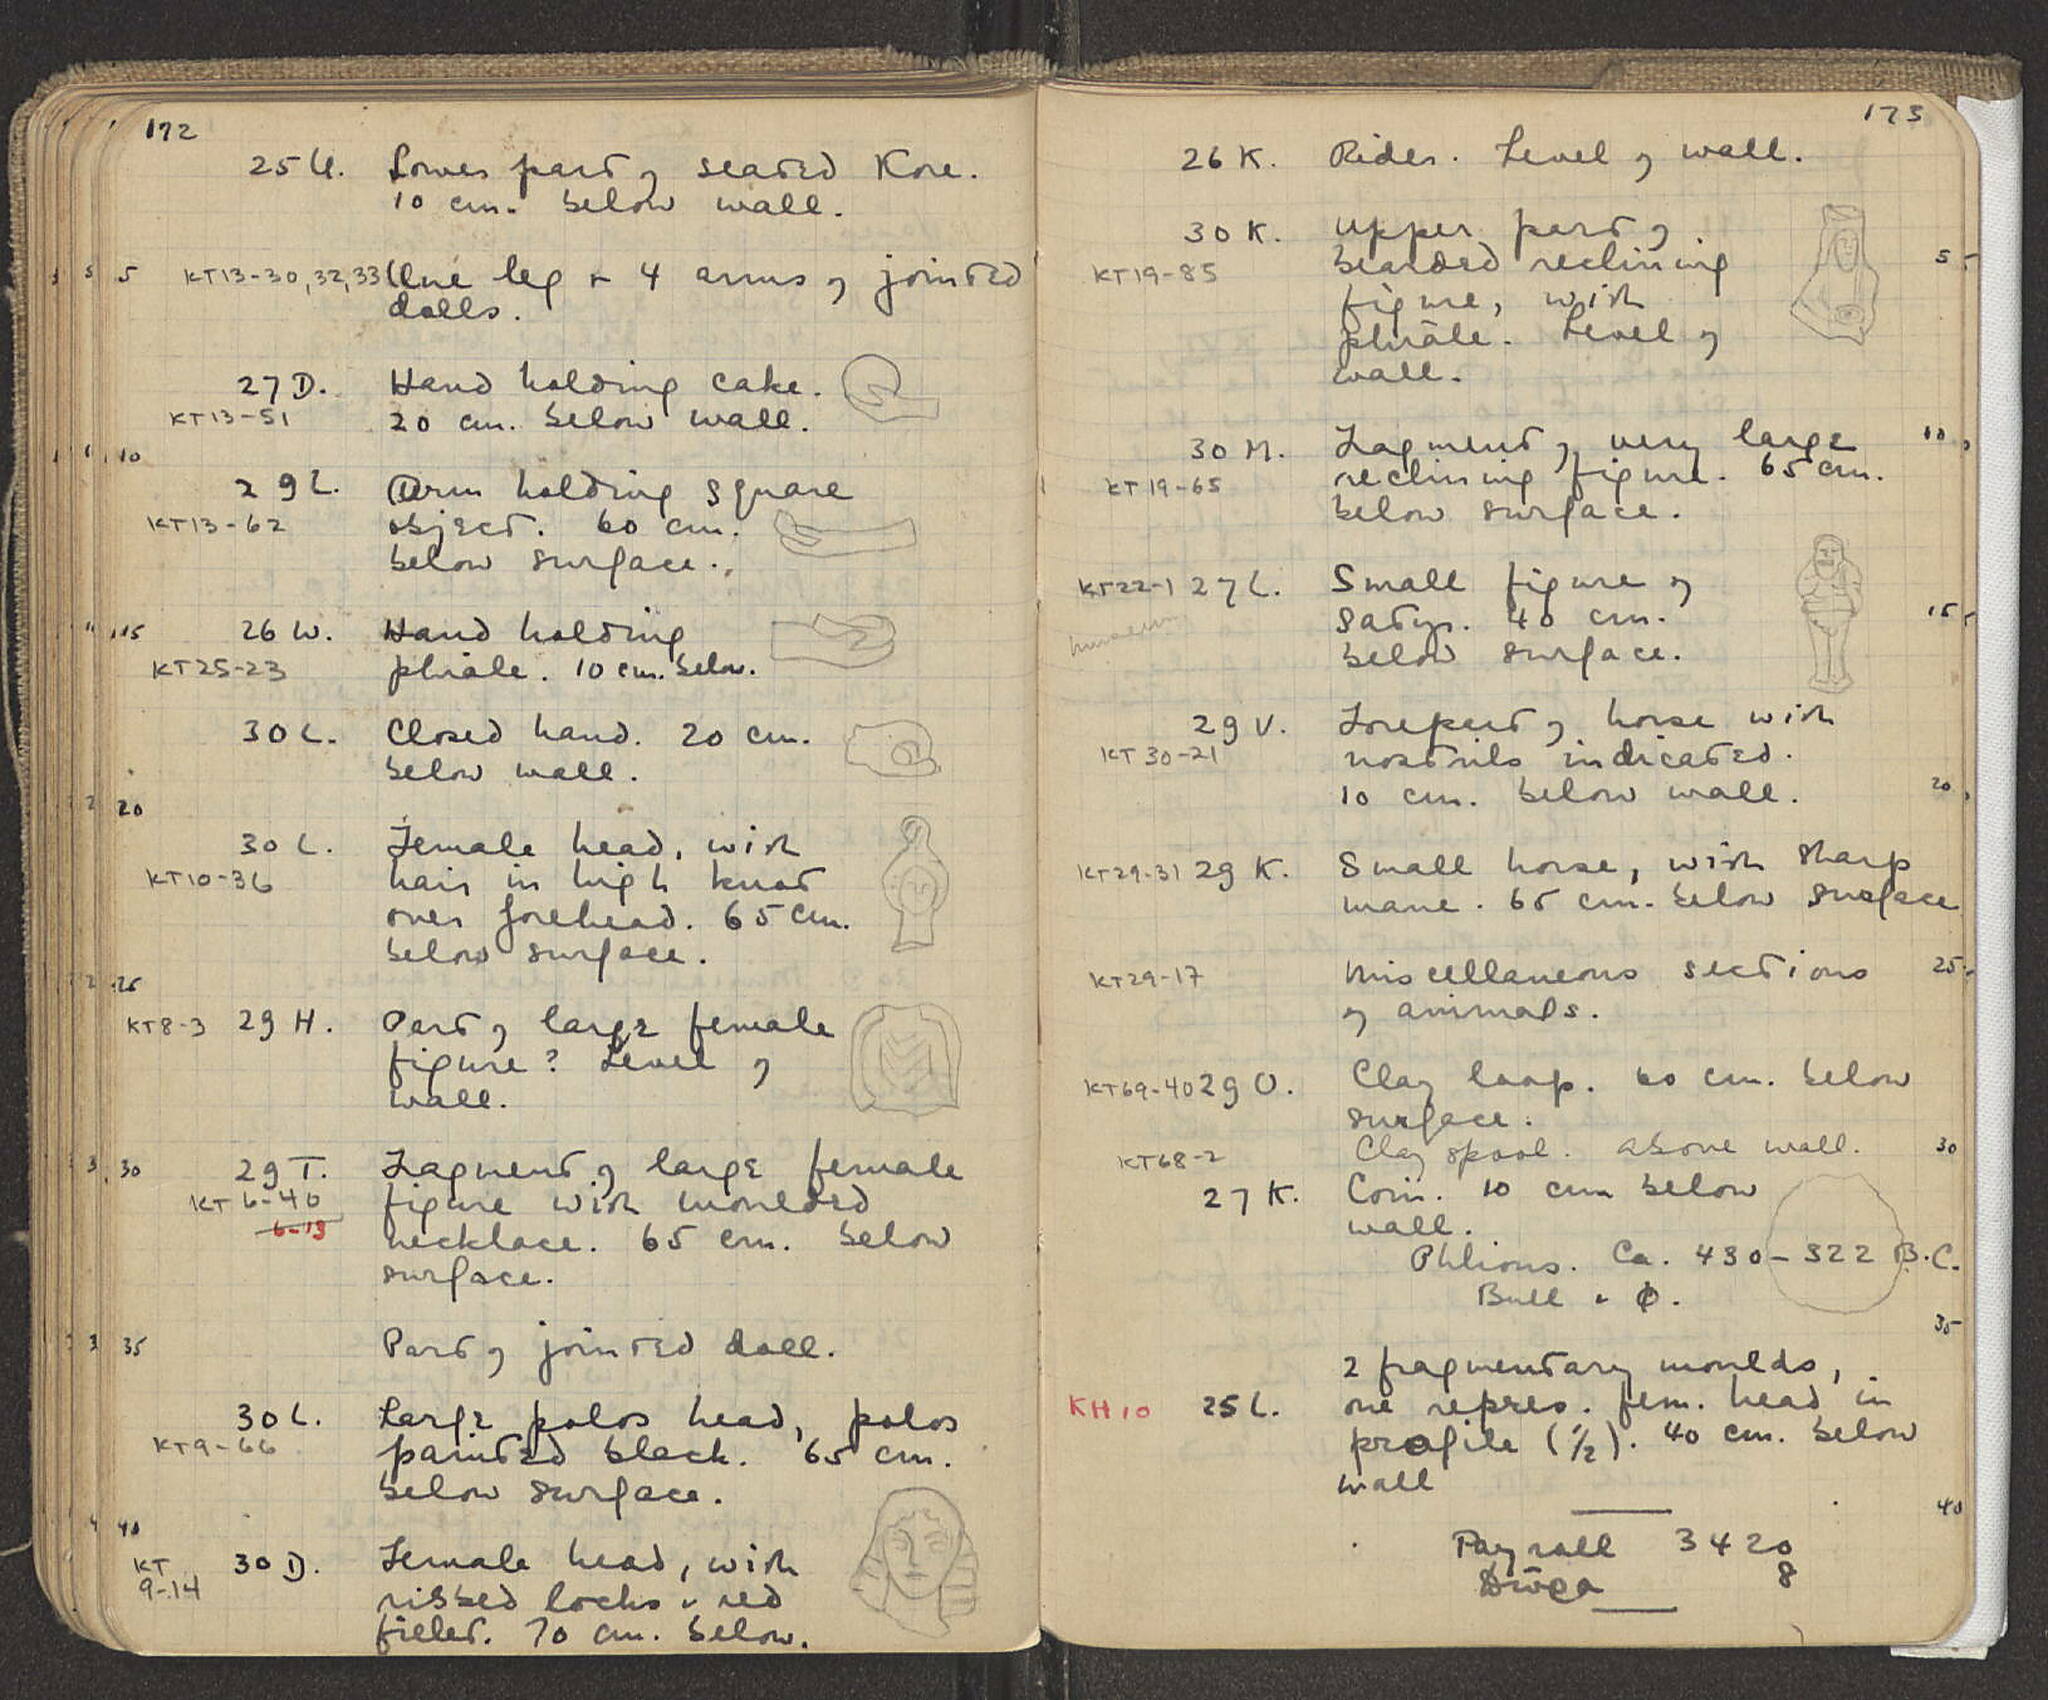 172
25 U. Lower part of seated Kore.
10 cm. below wall.
5 KT13-30,32,33 One leg + 4 arms of jointed
dolls.
27 D. Hand holding cake.
KT13-51 20 cm. below wall.
10
29 L. Arm holding square
KT13-62 object. 60 cm.
below surface.
15 26 W. Hand holding
KT25-23 phiale. 10 cm. below.
30 L. Closed hand. 20 cm.
below wall.
20
30 L. Female head, with
KT10-36 hair in high knot
over forehead. 65 cm.
below surface.
25
KT8-3 29 H. Part of large female
figure? Level of
wall.
30 29 T. Fragment of large female
KT 6-40 figure with moulded
6-13 necklace. 65 cm. below
surface.
35 Part of jointed doll.
30 L. Large polos head, polos
KT9-66 painted black. 65 cm.
below surface.
40
KT 30 D. Female head, with
9-14 ribbed locks & red
fillet. 70 cm. below.
173
26 K. Rider. Level of wall.
30 K. Upper part of
KT19-85 bearded reclining 5
figure, with
phiale. Level of
wall.
30 M. Fragment of very large 10
KT 19-65 reclining figure. 65 cm.
below surface.
KT22-1 27 L. Small figure of
museum satyr. 40 cm. 15
below surface.
29 V. Forepart of horse with
KT 30-21 nostrils indicated.
10 cm. below wall. 20
KT29-31 29 K. Small horse, with sharp
mane. 65 cm. below surface
KT29-17 Miscellaneous sections 25
of animals.
KT69-40 29 U. Clay loop. 60 cm. below
surface.
KT68-2 Clay spool. above wall. 30
27 K. Coin. 10 cm below
wall.
Phlious. Ca. 430-322 B.C.
Bull & Φ.
35
2 fragmentary moulds,
KH10 25 L. one repres. fem. head in
profile (1/2). 40 cm. below
wall
40
Payroll 3420
8